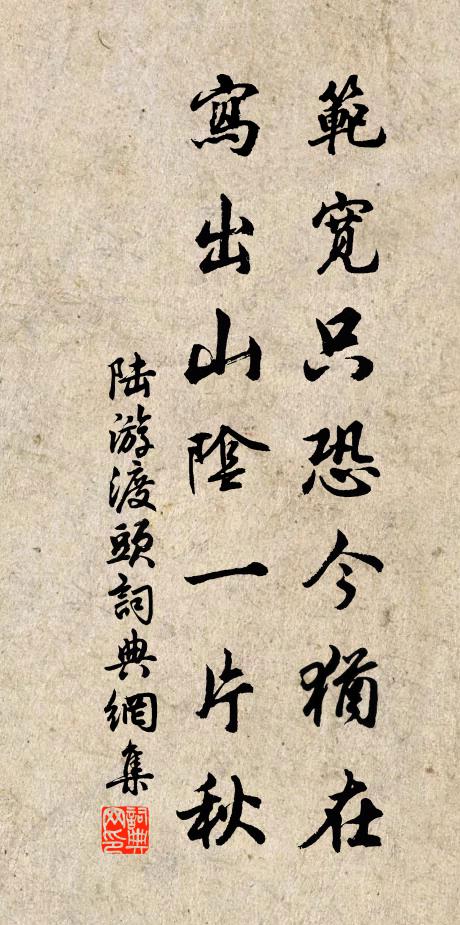 範寬只恐今猶在
寫出山陰一片秋
陆游渡頭詞典網集
詞典网印